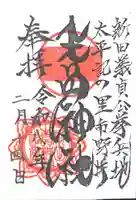 新田義貞公挙兵地
太平記の里市野井
生品神社
奉拝
令和八年
二月四日